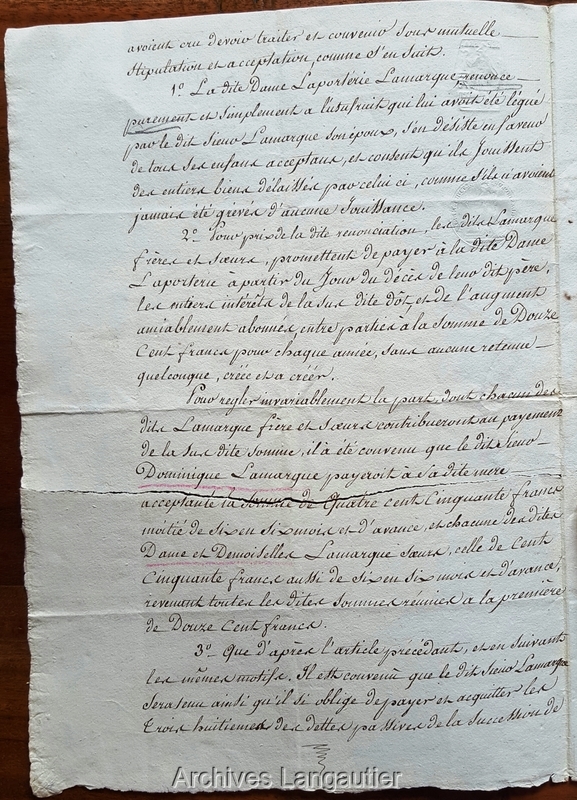 avoient cru devoir traiter et convenir sous mutuelle
stipulation et acceptation, comme s'en suit.
1º La dite Dame Laportérie Lamarque renonce
purement et simplement a l'usufruit qui lui avoit été légué
par le dit sieur Lamarque son époux, s'en désiste en faveur
de tous ses enfans acceptans, et consent qu'ils Jouissent
des entiers biens délaissés par celui ci, comme s'ils n'avoient
jamais été grévés d'aucune Jouissance.
2º Pour prix de la dite renonciation, les dits Lamarque
frères et sœurs, promettent de payer à la dite Dame
Laportérie à partir du Jour du décès de leur dit père,
les entiers intérêts de la sus dite dôt, et de l'augment
amiablement abonnés, entre parties à la somme de Douze
Cent francs pour chaque année, sans aucune retenue
quelconque, créée et a créér.
Pour regler invariablement la part, dont chacun des
dits Lamarque frère et sœurs contribueront au payement
de la sus dite somme, il a été convenu que le dit sieur
Dominique Lamarque payeroit à sa dite mère
acceptante la somme de Quatre Cent Cinquante francs
moitié de six en six mois et d'avance, et chacune des dites
Dame et Demoiselles Lamarque sœurs, celle de Cent
Cinquante francs aussi de six en six mois et d'avance,
revenant toutes les dites sommes réunies a la première
de Douze Cent francs.
3º Que d'après l'article précédant, et en suivant
les mêmes motifs. Il est convenû que le dit sieur Lamarque
sera tenu ainsi qu'il si oblige de payer et acquitter les
trois huitiemes des dettes passives de la succession de
Archives Langautier